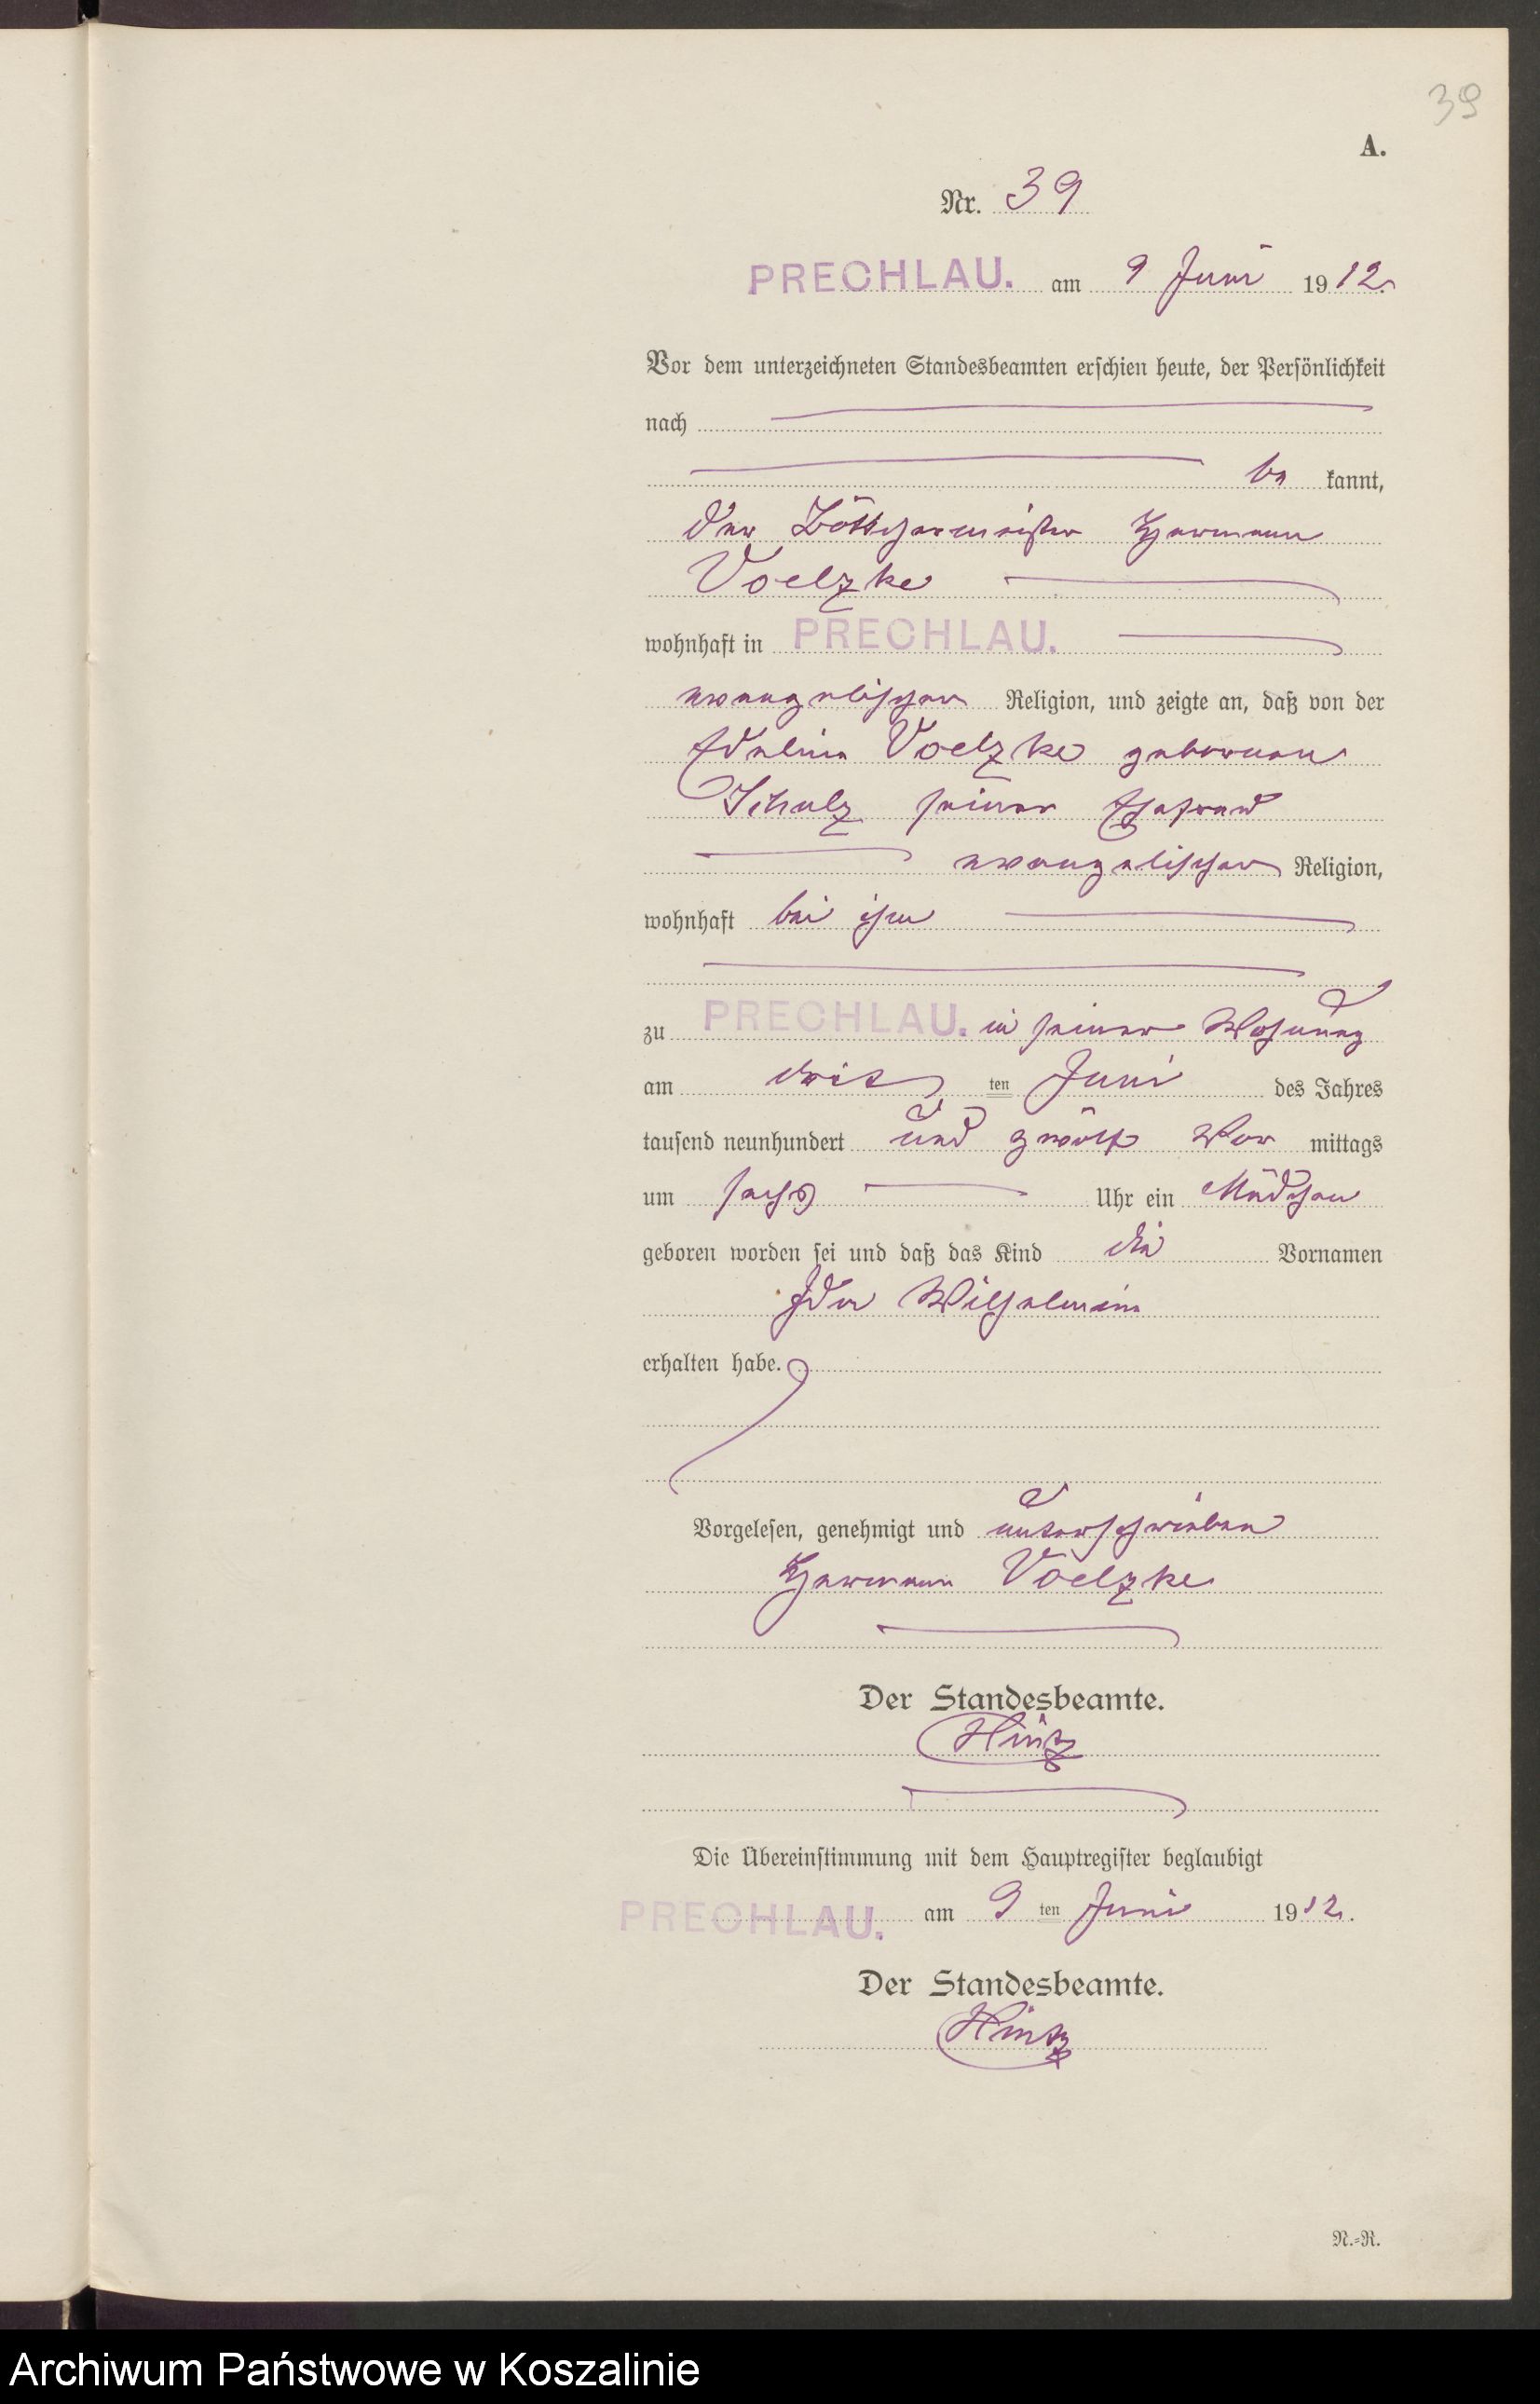 39
A.
Nr. 39
PRECHLAU. am 9 Juni 1912.
Vor dem unterzeichneten Standesbeamten erschien heute, der Persönlichkeit
nach
be kannt,
der Böttchermeister Hermann
Voelzke
wohnhaft in PRECHLAU.
evangelischer Religion, und zeigte an, daß von der
Voelzke geborenen
Schulz seiner Ehefrau
evangelischer Religion,
wohnhaft bei ihm
zu PRECHLAU. in seiner Wohnung
am drit ten Juni des Jahres
tausend neunhundert und zwölf Vor mittags
um sechs Uhr ein Mädchen
geboren worden sei und daß das Kind die Vornamen
Ida Wilhelmine
erhalten habe.
Vorgelesen, genehmigt und unterschrieben
Hermann Voelzke
Der Standesbeamte.
Hintz
Die Übereinstimmung mit dem Hauptregister beglaubigt
PRECHLAU. am 9 ten Juni 1912.
Der Standesbeamte.
Hintz
N.=R.
Archiwum Państwowe w Koszalinie